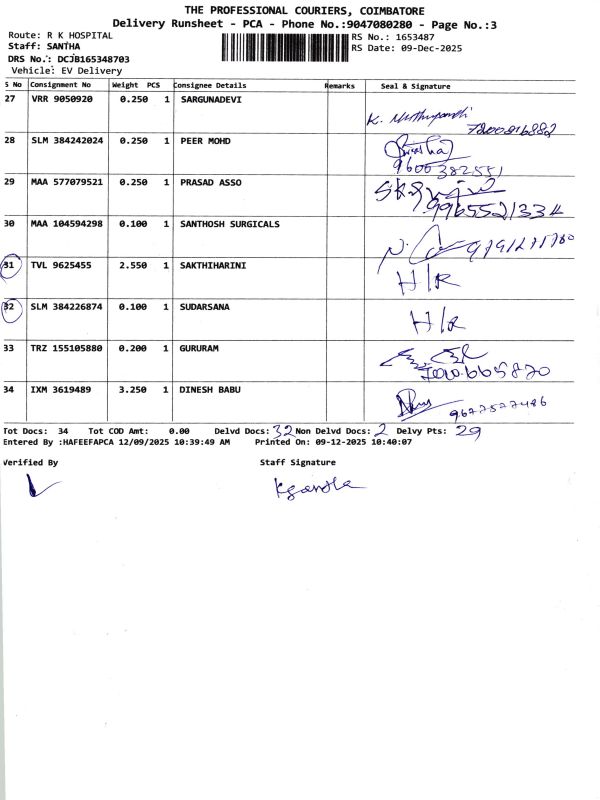 THE PROFESSIONAL COURIERS, COIMBATORE
Delivery Runsheet - PCA - Phone No.:9047080280 - Page No.:3
Route: R K HOSPITAL
RS No.: 1653487
Staff: SANTHA
RS Date: 09-Dec-2025
DRS No.: DCJB165348703
Vehicle: EV Delivery
S No Consignment No Weight PCS Consignee Details Remarks Seal & Signature
27 VRR 9050920 0.250 1 SARGUNADEVI
28 SLM 384242024 0.250 1 PEER MOHD
9600382551
29 MAA 577079521 0.250 1 PRASAD ASSO
9965521334
30 MAA 104594298 0.100 1 SANTHOSH SURGICALS
31 TVL 9625455 2.550 1 SAKTHIHARINI H/R
32 SLM 384226874 0.100 1 SUDARSANA H/R
33 TRZ 155105880 0.200 1 GURURAM
34 IXM 3619489 3.250 1 DINESH BABU
Tot Docs: 34 Tot COD Amt: 0.00 Delvd Docs: 32 Non Delvd Docs: 2 Delvy Pts: 29
Entered By :HAFEEFAPCA 12/09/2025 10:39:49 AM Printed On: 09-12-2025 10:40:07
Verified By Staff Signature